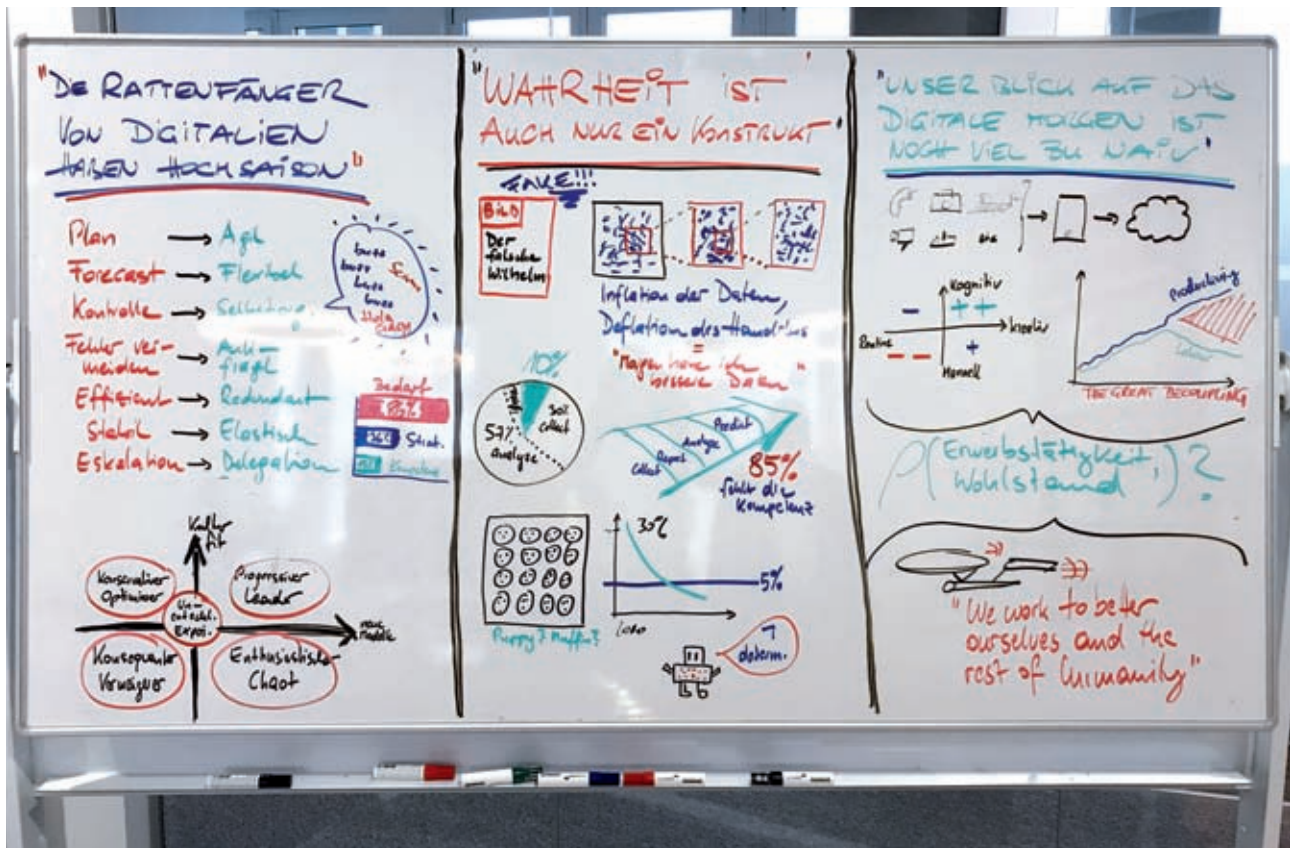 "DIE RATTENFÄNGER
VON DIGITALIEN
HABEN HOCHSAISON"
Plan → Agil
Forecast → Flexibel
Kontrolle →
Fehler ver-
meiden →
Effizient → Redundant
Stabil → Elastisch
Eskalation → Delegation
buzz
buzz
buzz
buzz
Bedarf
Strat.
Kultur
fit
Konservativer
Optimierer
Progressiver
Leader
Un-
entschl.
neue
Modelle
Konsequenter
Verweigerer
Enthusiastischer
Chaot
"WAHRHEIT IST
AUCH NUR EIN KONSTRUKT"
FAKE!!!
BILD
Der
falsche
Wilhelm
Inflation der Daten,
Deflation des Handelns
=
"Morgen habe ich
bessere Daten"
10%
30%
collect
57%
analyze
Collect
Report
Analyze
Predict
85%
fehlt die
Kompetenz
Puppy? Muffin?
30%
5%
determ.
"UNSER BLICK AUF DAS
DIGITALE MORGEN IST
NOCH VIEL ZU NAIV"
Kognitiv
- ++
Routine
kreativ
-- +
Manuell
Productivity
Labour
THE GREAT DECOUPLING
ρ(Erwerbstätigkeit,
Wohlstand)?
"We work to better
ourselves and the
rest of humanity"